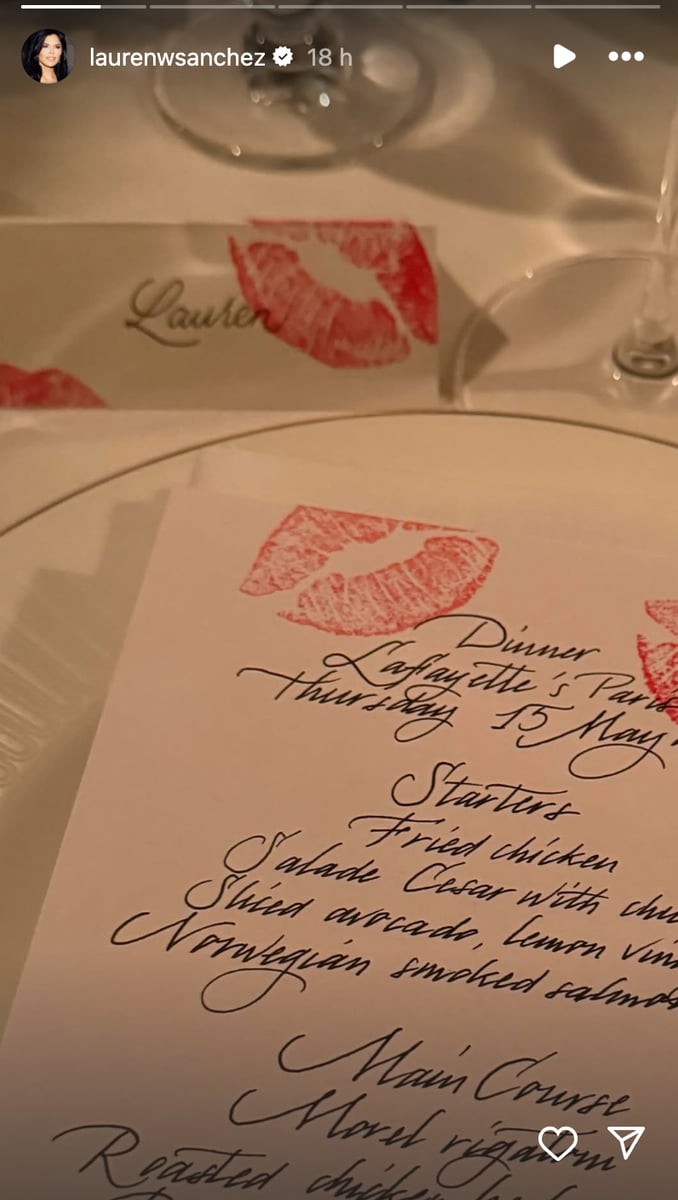 laurenwsanchez 18 h
Lauren
Dinner
Lafayette's Paris
Thursday 15 May
Starters
Fried chicken
Salade Cesar with
Sliced avocado, lemon
Norwegian smoked salmon
Main Course
Morel rigatoni
Roasted chicken